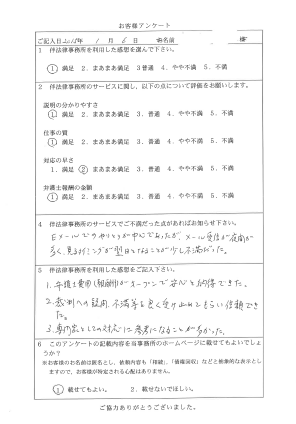 お客様アンケート
ご記入日2015年 1月 6日 お名前 様
1 伴法律事務所を利用した感想を選んで下さい。
1.満足 2.まあまあ満足 3 普通 4.やや不満 5.不満
2 伴法律事務所のサービスに関し、以下の点について評価をお願いします。
説明の分かりやすさ
1.満足 2.まあまあ満足 3.普通 4.やや不満 5.不満
仕事の質
1.満足 2.まあまあ満足 3.普通 4.やや不満 5.不満
対応の早さ
1.満足 2.まあまあ満足 3.普通 4.やや不満 5.不満
弁護士報酬の金額
1.満足 2.まあまあ満足 3.普通 4.やや不満 5.不満
4 伴法律事務所のサービスでご不満だった点があればお知らせ下さい。
Eメールでのやりとりが中心であったが、メール受信が夜間が
多く、見るタイミングが翌日となることが少し不満だった。
5 伴法律事務所を利用した感想をご記入下さい。
1.弁護士費用(報酬)がオープンで安心と納得できた。
2.裁判への疑問、不満等を良く受け止めてもらい信頼でき
た。
3.専門家としての対応に参考になることが多かった。
6 このアンケートの記載内容を当事務所のホームページに載せてもよいでしょ
うか?
※お客様のお名前は匿名とし、依頼内容も「相続」「債権回収」などと抽象的な表示とし
ますので、お客様が特定される心配はありません。
1.載せてもよい。 2.載せないでほしい。
ご協力ありがとうございました。